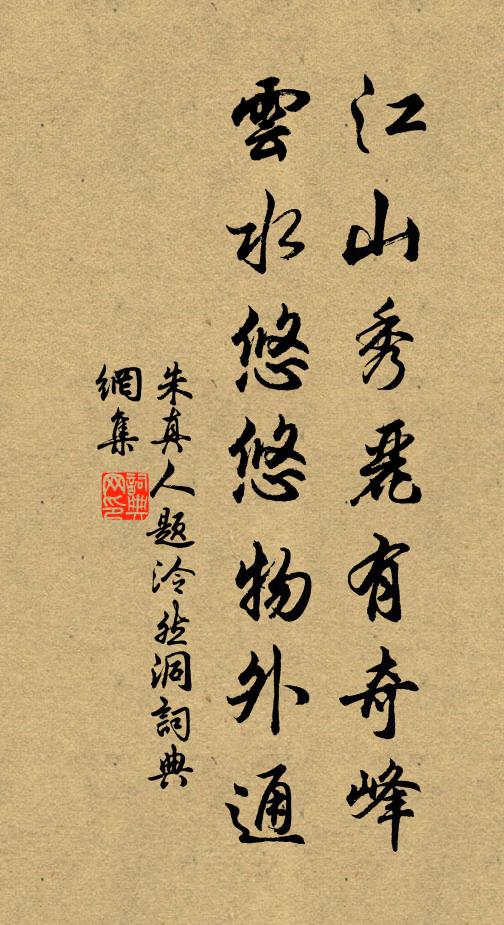 江山秀麗有奇峰
雲水悠悠物外通
朱真人題泠然洞詞典
網集
詞典
网印